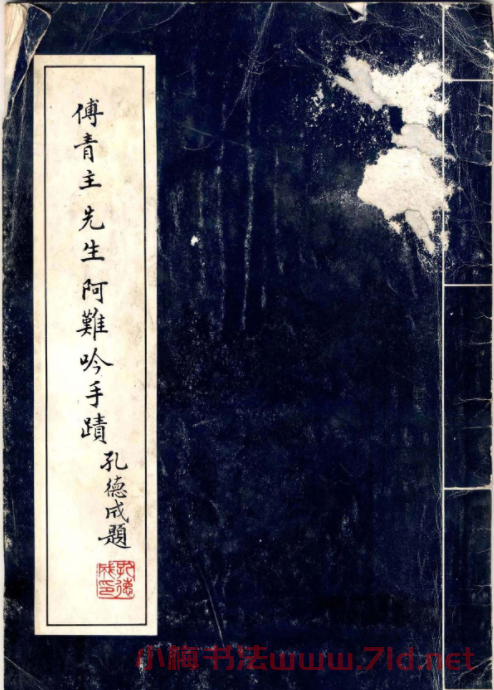 傅青主先生阿難吟手蹟
孔德成題
孔德成印
小梅书法www.7ld.net